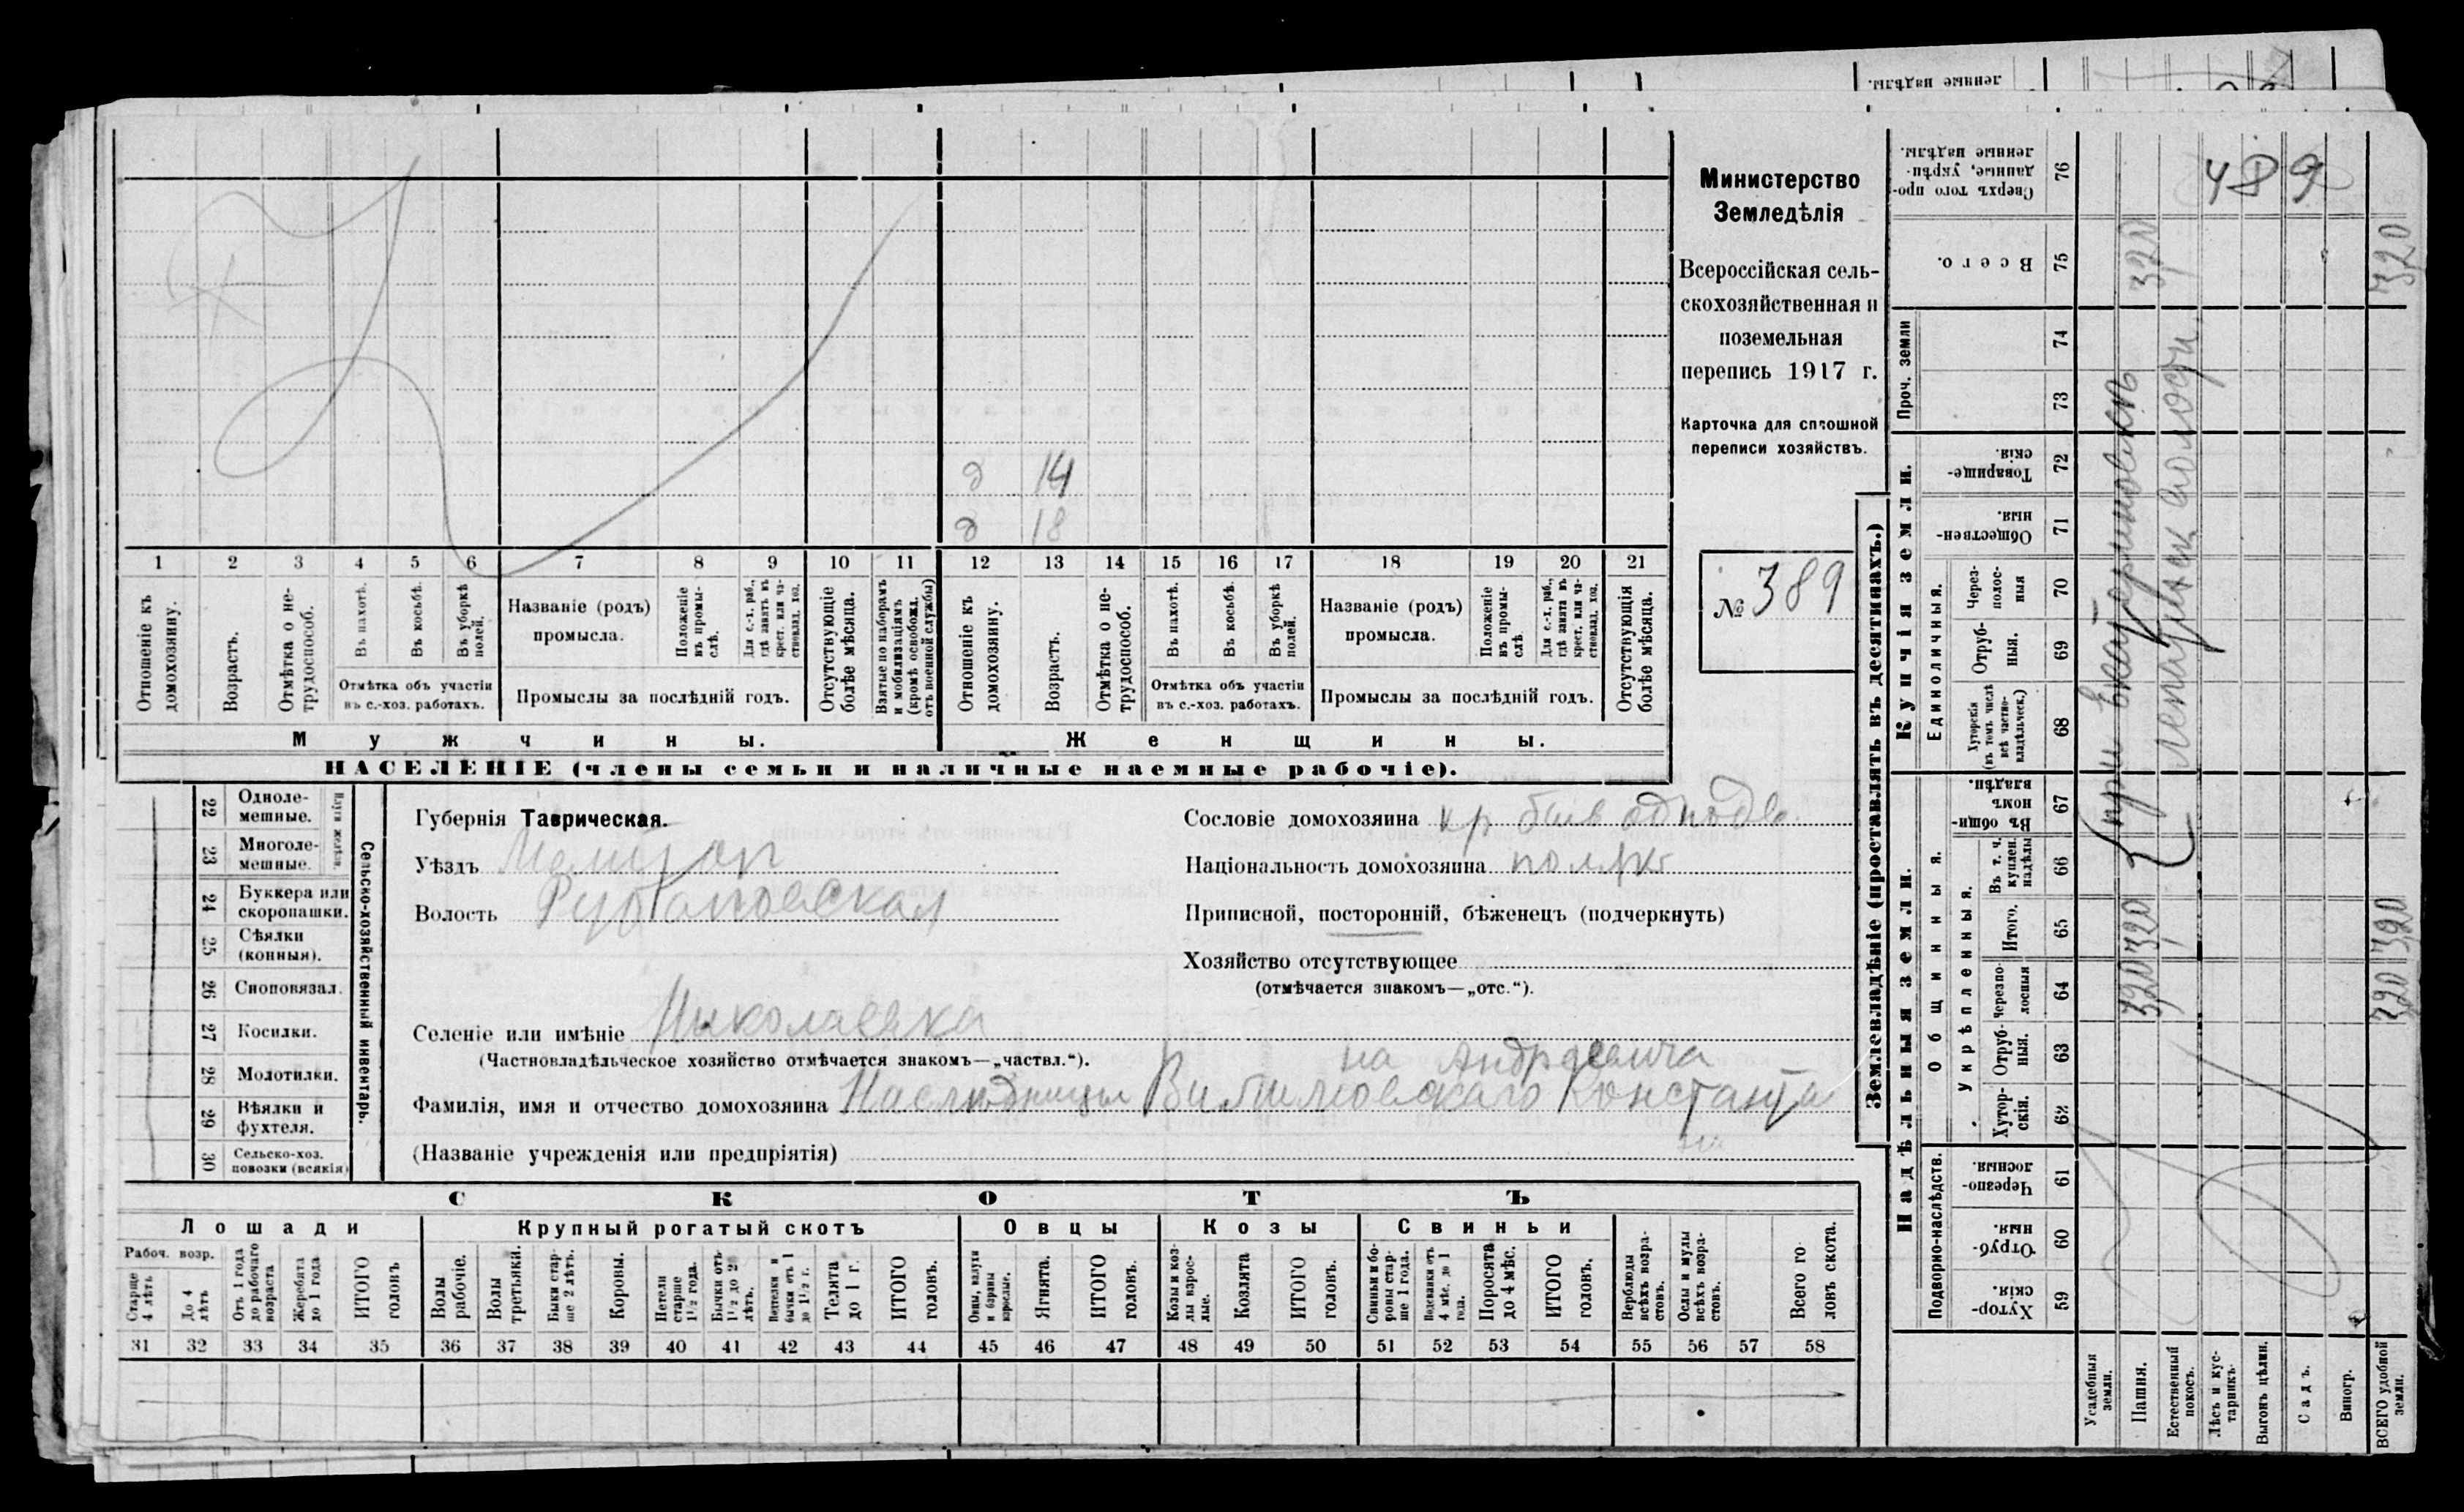 ленные надѣлы.
Министерство
Земледѣлія
Всероссійская сель-
скохозяйственная и
поземельная
перепись 1917 г.
Карточка для сплошной
переписи хозяйствъ.
№ 389
д 14
д 18
1 2 3 4 5 6 7 8 9 10 11 12 13 14 15 16 17 18 19 20 21
Отношеніе къ домохозяину.
Возрастъ.
Отмѣтка о не-трудоспособ.
Въ пахотѣ.
Въ косьбѣ.
Въ уборкѣ полей.
Отмѣтка объ участіи
въ с.-хоз. работахъ.
Названіе (родъ)
промысла.
Положеніе въ промы-слѣ.
Для с.-х. раб., гдѣ занятъ въ крест. или ча-стновлад. хоз.
Промыслы за послѣдній годъ.
Отсутствующіе болѣе мѣсяца.
Взятые по наборамъ и мобилизаціямъ (кромѣ освобожд. отъ военной службы)
Отношеніе къ домохозяину.
Возрастъ.
Отмѣтка о не-трудоспособ.
Въ пахотѣ.
Въ косьбѣ.
Въ уборкѣ полей.
Отмѣтка объ участіи
въ с.-хоз. работахъ.
Названіе (родъ)
промысла.
Положеніе въ промы-слѣ.
Для с.-х. раб., гдѣ занята въ крест. или ча-стновлад. хоз.
Промыслы за послѣдній годъ.
Отсутствующія болѣе мѣсяца.
Мужчины.
Женщины.
НАСЕЛЕНІЕ (члены семьи и наличные наемные рабочіе).
22 Одноле-мешные.
23 Многоле-мешные.
24 Буккера или скоропашки.
25 Сѣялки (конныя).
26 Сноповязал.
27 Косилки.
28 Молотилки.
29 Вѣялки и фухтеля.
30 Сельско-хоз. повозки (всякія)
Сельско-хозяйственный инвентарь.
Губернія Таврическая.
Уѣздъ Мелитоп
Волость
Селеніе или имѣніе Николаевка
(Частновладѣльческое хозяйство отмѣчается знакомъ—„частвл.“).
на Андреевича
Фамилія, имя и отчество домохозяина Наслѣдницы Константи
(Названіе учрежденія или предпріятія)
Сословіе домохозяина кр быв
Національность домохозяина поляк
Приписной, посторонній, бѣженецъ (подчеркнуть)
Хозяйство отсутствующее
(отмѣчается знакомъ—„отс.“).
СКОТЪ
Лошади
Крупный рогатый скотъ
Овцы
Козы
Свиньи
Рабоч. возр.
Старше 4 лѣтъ
До 4 лѣтъ
Отъ 1 года до рабочаго возраста
Жеребята до 1 года
ИТОГО головъ
Волы рабочіе.
Волы третьяки.
Быки стар-ше 2 лѣтъ.
Коровы.
Нетели старше 1½ года.
Бычки отъ 1½ до 2 лѣтъ.
Нетелки и бычки отъ 1 до 1½ г.
Телята до 1 г.
ИТОГО головъ.
Овцы, валухи и бараны взрослые.
Ягнята.
ИТОГО головъ.
Козы и коз-лы взрос-лые.
Козлята
ИТОГО головъ.
Свиньи и бо-ровы стар-ше 1 года.
Подсвинки отъ 4 мѣс. до 1 года.
Поросята до 4 мѣс.
ИТОГО головъ.
Верблюды всѣхъ возра-стовъ.
Ослы и мулы всѣхъ возра-стовъ.
Всего го-ловъ скота.
31 32 33 34 35 36 37 38 39 40 41 42 43 44 45 46 47 48 49 50 51 52 53 54 55 56 57 58
Землевладѣніе (проставлять въ десятинахъ.)
Надѣльныя земли.
Купчія земли.
Проч. земли
Подворно-наслѣдств.
Общинныя.
Укрѣпленныя.
Единоличныя.
Хутор-скія. 59
Отруб-ныя. 60
Черезпо-лосныя. 61
Хутор-скія. 62
Отруб-ныя. 63
Черезпо-лосныя 64
Итого. 65
Въ т. ч. куплен. надѣлы 66
Въ общин-номъ владѣн. 67
Хуторскія (въ томъ числѣ всѣ частно-владѣльческ.) 68
Отруб-ныя. 69
Через-полос-ныя 70
Обществен-ныя. 71
Товарище-скія. 72
73
74
Всего. 75
Сверхъ того про-данные, укрѣп-ленные надѣлы. 76
489
Усадебныя земли.
Пашня. 320 320 320
Естественный покосъ.
Лѣсъ и кус-тарникъ.
Выгонъ цѣлин.
Садъ.
Виногр.
ВСЕГО удобной земли. 320 320 320
при
волости